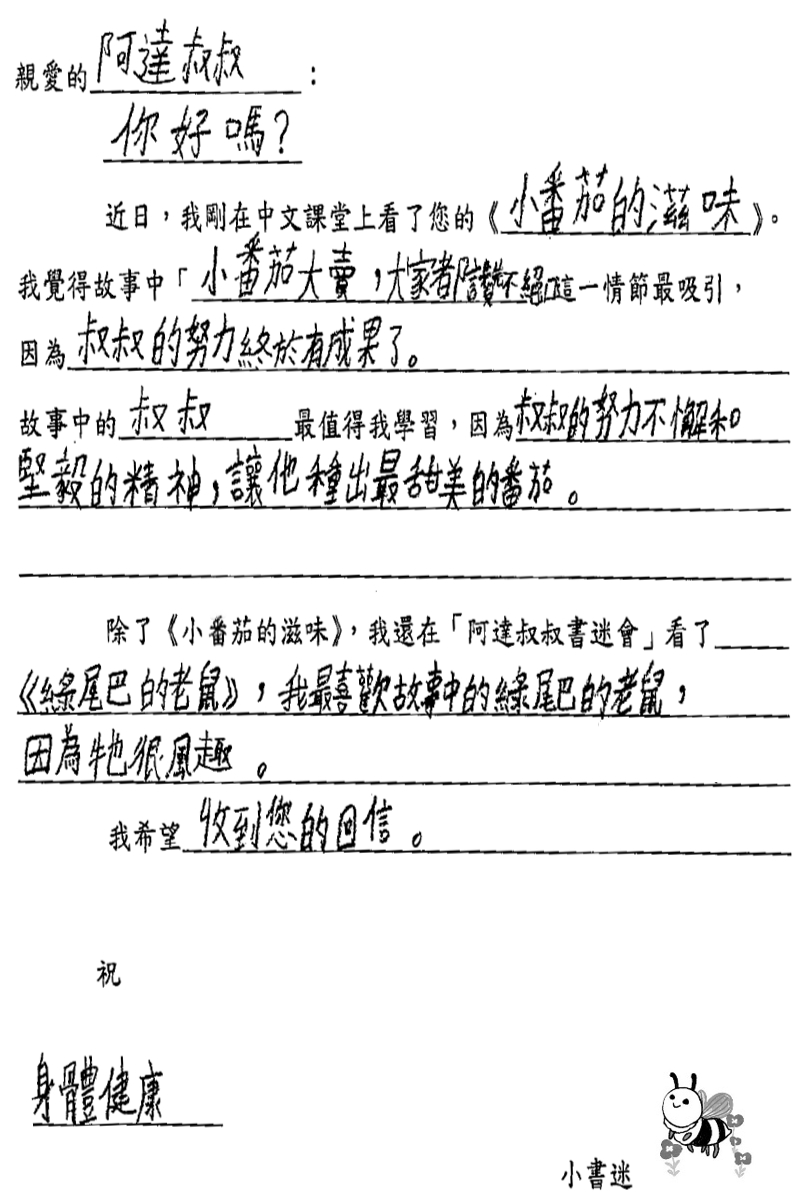 親愛的阿達叔叔：
你好嗎？
近日，我剛在中文課堂上看了您的《小番茄的滋味》。
我覺得故事中「小番茄大賣，大家都讚不絕口」這一情節最吸引，
因為叔叔的努力終於有成果了。
故事中的叔叔最值得我學習，因為叔叔的努力不懈和
堅毅的精神，讓他種出最甜美的番茄。
除了《小番茄的滋味》，我還在「阿達叔叔書迷會」看了
《綠尾巴的老鼠》，我最喜歡故事中的綠尾巴的老鼠，
因為牠很風趣。
我希望收到您的回信。
祝
身體健康
小書迷